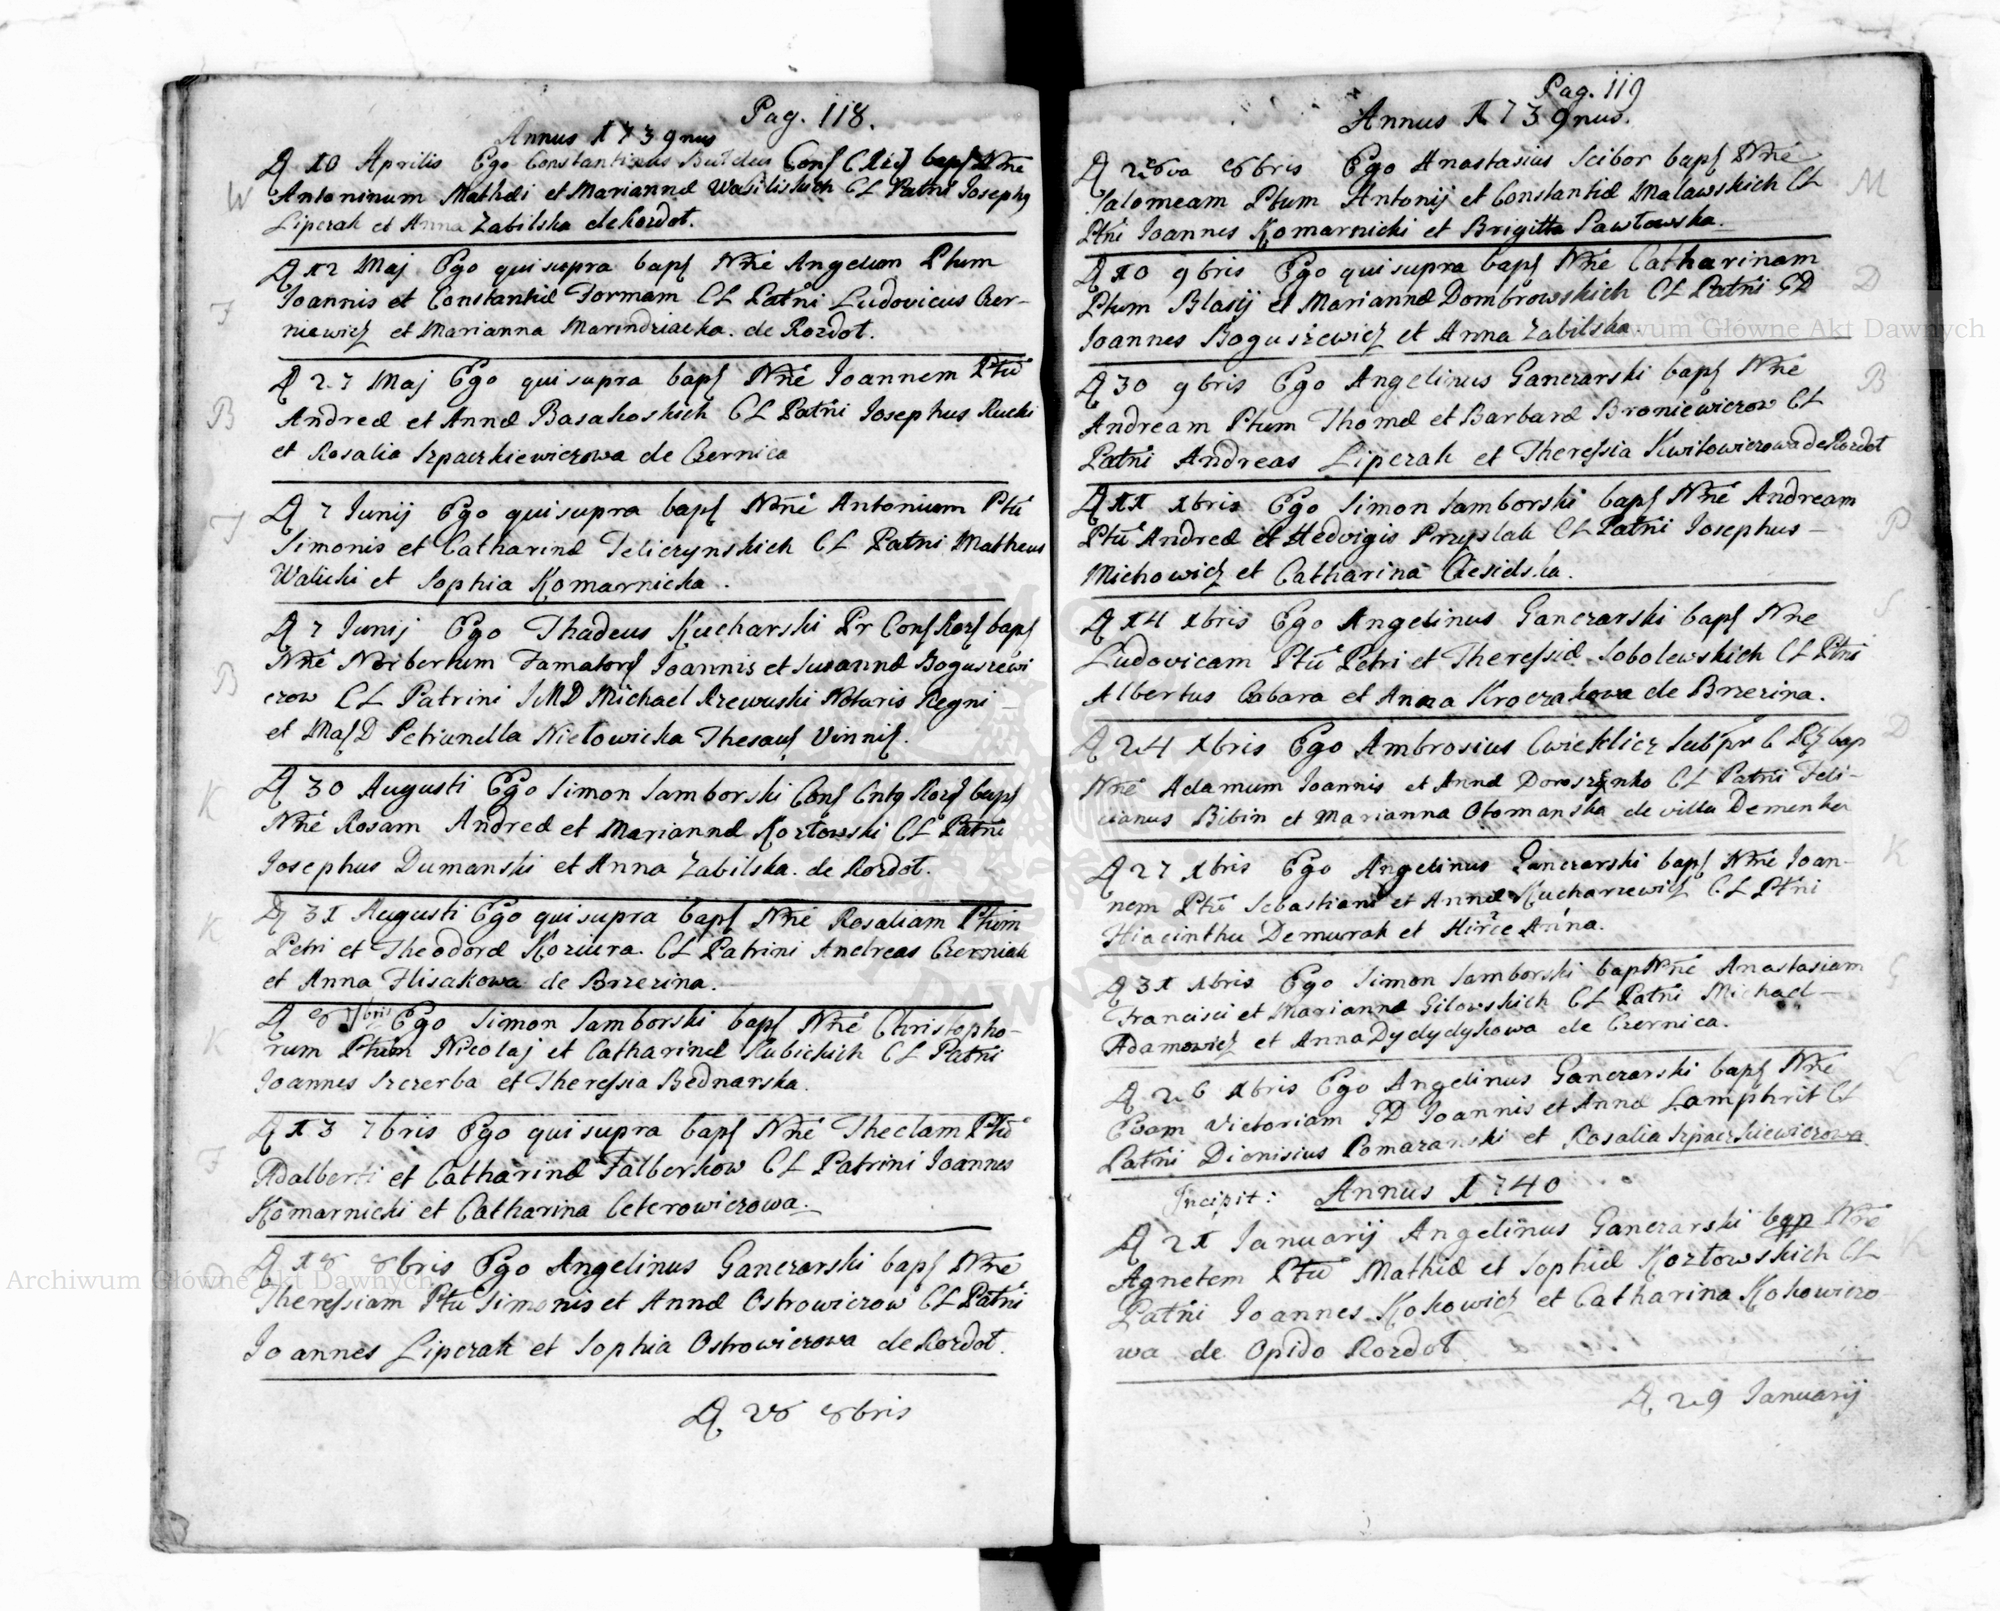 Pag. 118.
Annus 1739nus
W
D 10 Aprilis Ego Constantinus Conf bapt Nñe
Antoninum Mathæi et Mariannæ Wasiliskich CL Patñi Joseph9
Liperak et Anna Zabilska de Rozdoł.
F
D 12 Maj Ego qui supra bapt Nñe Angelum Ptum
Joannis et Constantiæ Formam CL Patñi Ludovicus Czer-
niewicz et Marianna Marindziacka. de Rozdoł.
B
D 27 Maj Ego qui supra bapt Nñe Joannem Ptũ
Andreæ et Annæ Basakoskich CL Patñi Josephus Rucki
et Rosalia Szpaczkiewiczowa de Czernica
F
D 7 Junij Ego qui supra bapt Nñe Antonium Ptũ
Simonis et Catharinæ Feliczynskich CL Patñi Matheus
Walicki et Sophia Komarnicka.
B
D 7 Junij Ego Thadeus Kucharski Pr Conf Roz bapt
Nñe Norbertum Joannis et Susannæ Boguszewi
czow CL Patrini Michael Rzewuski Notaris Regni –
et Petrunella Nietowicka Thesaur Vinnis.
K
D 30 Augusti Ego Simon Samborski Conf Roz bapt
Nñe Rosam Andreæ et Mariannæ Kozłowski CL Patñi
Josephus Dumanski et Anna Zabilska. de Rozdoł.
K
D 31 Augusti Ego qui supra bapt Nñe Rosaliam Ptum
Petri et Theodoræ Koziura. CL Patrini Andreas Czerniak
et Anna Flisakowa de Brzezina.
K
D 8 7bris Ego Simon Samborski bapt Nñe Christopho-
rum Ptum Nicolaj et Catharinæ Kubickich CL Patñi
Joannes Szczerba et Theressia Bednarska.
F
D 13 7bris Ego qui supra bapt Nñe Theclam Ptũ
Adalberti et Catharinæ Falberskow CL Patrini Joannes
Komarnicki et Catharina Ceterowiczowa.
O
D 18 8bris Ego Angelinus Ganczarski bapt Nñe
Theressiam Ptũ Simonis et Annæ Ostrowiczow CL Patñi
Joannes Liperak et Sophia Ostrowiczowa de Rozdoł.
D 28 8bris
Pag. 119
Annus 1739nus.
M
D 28va 8bris Ego Anastasius Scibor bapt Nñe
Salomeam Ptum Antonij et Constantiæ Malawskich CL
Ptñi Joannes Komarnicki et Brigitta Pawłowska.
D
D 10 9bris Ego qui supra bapt Nñe Catharinam
Ptum Blasij et Mariannæ Dombrowskich CL Patñi GD
Joannes Boguszewicz et Anna Zabilska.
B
D 30 9bris Ego Angelinus Ganczarski bapt Nñe
Andream Ptum Thomæ et Barbaræ Broniewiczow CL
Patñi Andreas Liperak et Theressia Kwitowiczowa de Rozdoł
P
D 11 xbris Ego Simon Samborski bapt Nñe Andream
Ptũ Andreæ et Hedvigis Przyslak CL Patñi Josephus –
Michowicz et Catharina Ciesidska.
S
D 14 xbris Ego Angelinus Ganczarski bapt Nñe
Ludovicam Ptũ Petri et Theressiæ Sobolewskich CL Ptñi
Albertus Cabara et Anna Kroczakowa de Brzezina.
D
D 24 xbris Ego Ambrosius Cwieklicz bap
Nñe Adamum Joannis et Annæ Doroszynko CL Patñi Feli-
cianus Bibin et Marianna Otomanska de villa Demenka
K
D 27 xbris Ego Angelinus Ganczarski bapt Nñe Joan-
nem Ptũ Sebastiani et Annæ Kucharzewicz CL Ptñi
Hiacinthu Demurak et Anna.
G
D 31 xbris Ego Simon Samborski bap Nñe Anastasiam
Francisci et Mariannæ Gilowskich CL Patñi Michael –
Adamowicz et Anna Dydydykowa de Czernica.
L
D 26 xbris Ego Angelinus Ganczarski bapt Nñe
Evam Victoriam GD Joannis et Annæ Lamphrit CL
Patñi Dionisius Pomaranski et Rosalia Szpaczkiewiczowa.
Incipit: Annus 1740
K
D 21 Januarij Angelinus Ganczarski bap Nñe
Agnetem Ptũ Mathiæ et Sophiæ Kozłowskich CL
Patñi Joannes Kokowicz et Catharina Kokowiczo-
wa de Opido Rozdoł.
D 29 Januarij
Archiwum Główne Akt Dawnych
Archiwum Główne Akt Dawnych